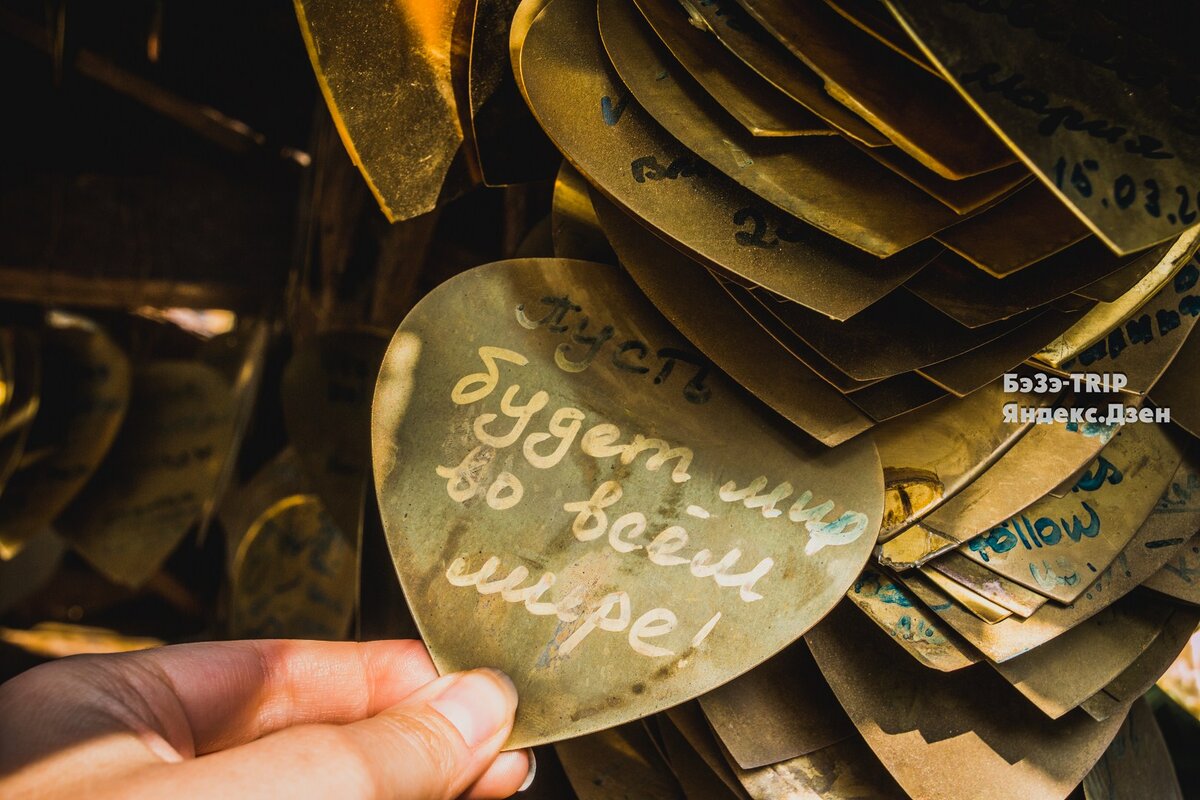 Пусть
будет мир
во всём
мире!
Мария
15.03.2
БэЗэ-TRIP
Яндекс.Дзен
follow
us